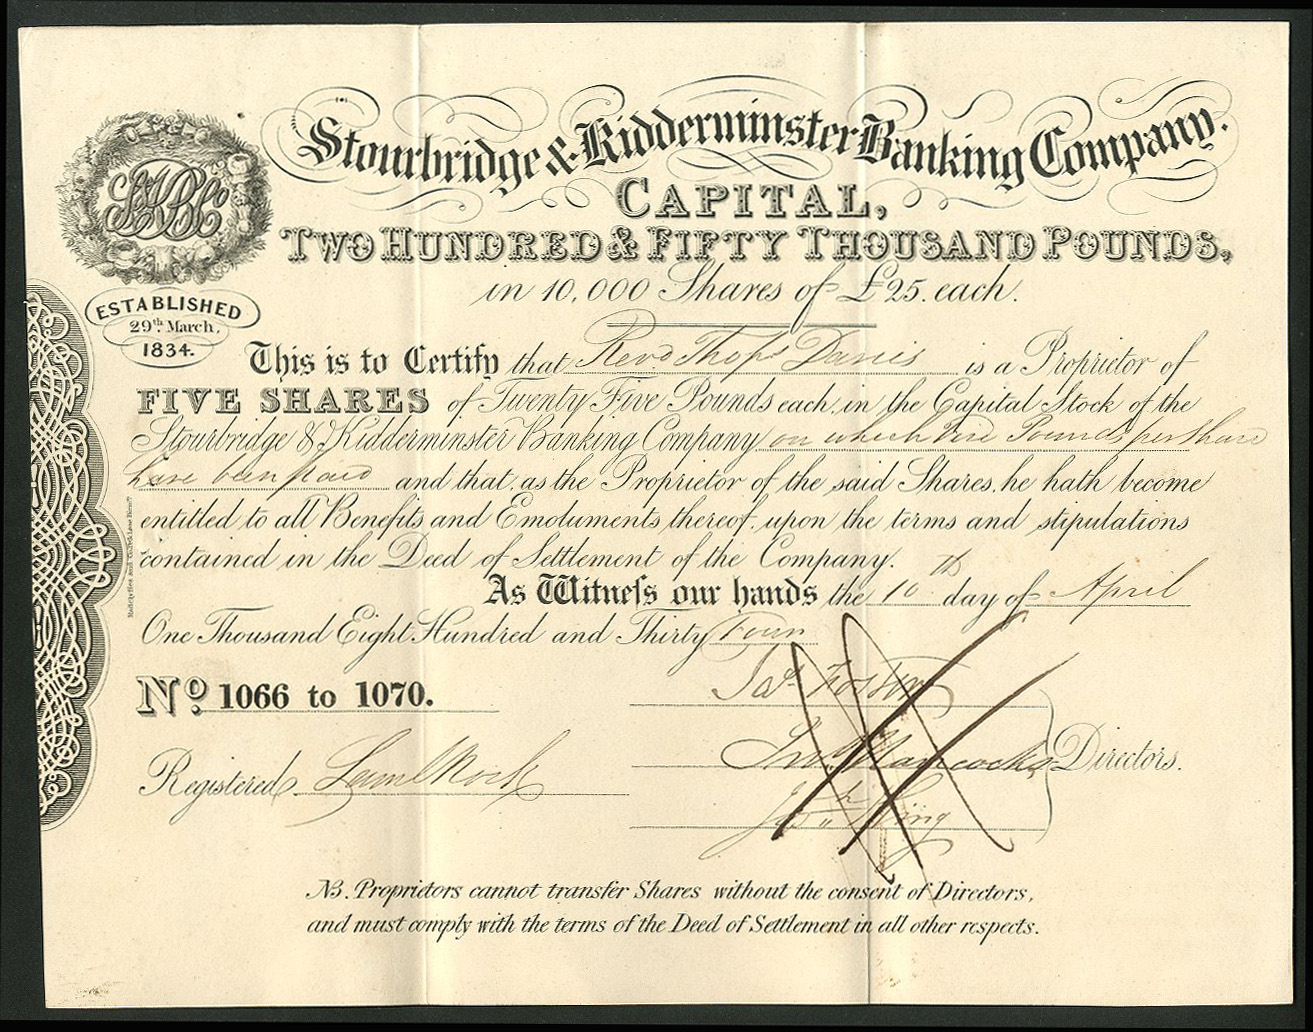 Stourbridge & Kidderminster Banking Company.
CAPITAL,
TWO HUNDRED & FIFTY THOUSAND POUNDS,
in 10,000 Shares of £25. each.
S&KBCo
ESTABLISHED
29th March,
1834.
This is to Certify that Revd. Thos. Davies is a Proprietor of
FIVE SHARES of Twenty Five Pounds each, in the Capital Stock of the
Stourbridge & Kidderminster Banking Company on which Five Pounds per Share
have been paid and that, as the Proprietor of the said Shares, he hath become
entitled to all Benefits and Emoluments thereof, upon the terms and stipulations
contained in the Deed of Settlement of the Company.
As Witness our hands the 10th day of April
One Thousand Eight Hundred and Thirty Four
No. 1066 to 1070.
Jas. Foster
Jno. Hancocks
King
Directors.
Registered
NB. Proprietors cannot transfer Shares without the consent of Directors,
and must comply with the terms of the Deed of Settlement in all other respects.